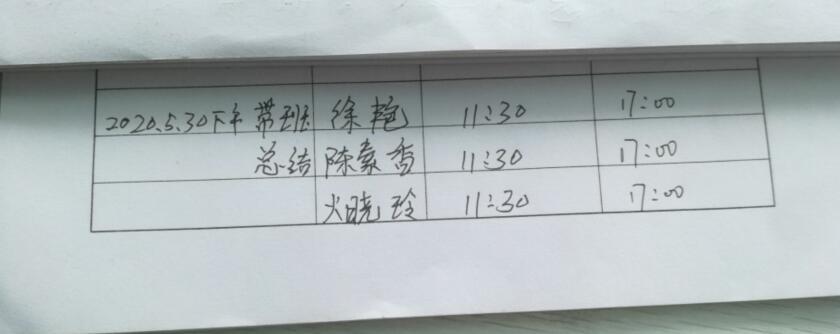 2020.5.30下午 带班 徐艳 11:30 17:00
总结 陈素香 11:30 17:00
火晓玲 11:30 17:00